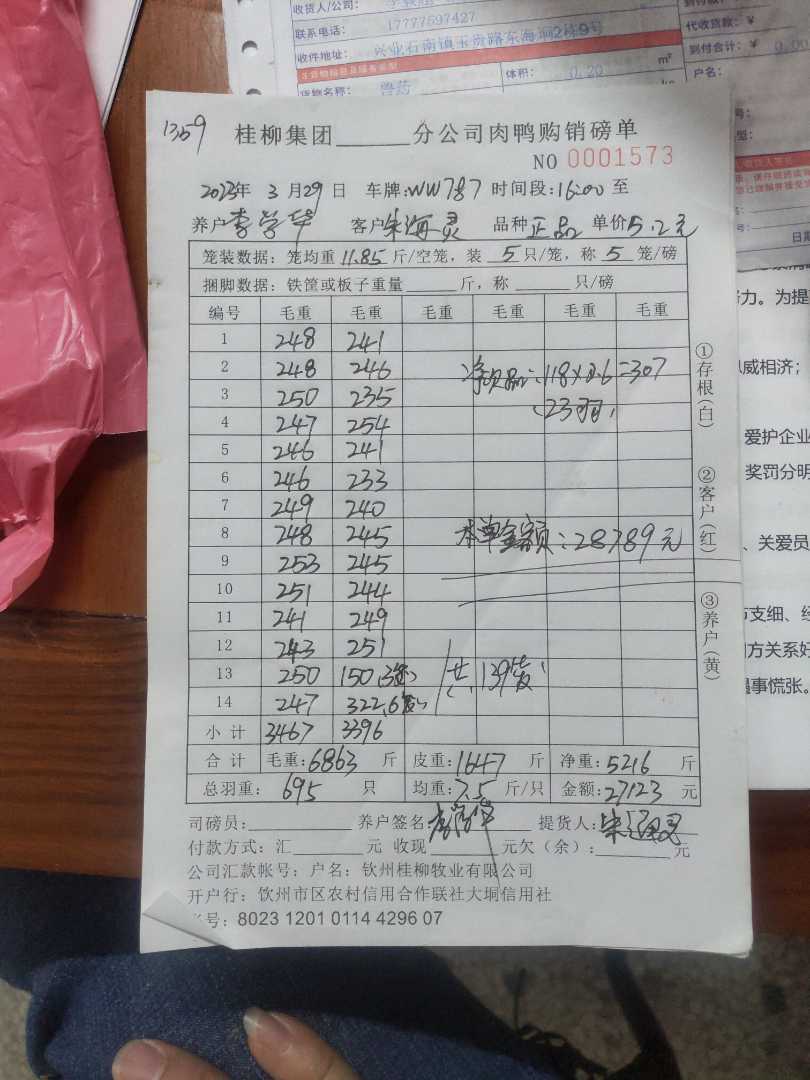 收货人/公司：
联系电话： 17777597427
收件地址： 兴业石南镇玉贵路东海垌2楼9号
货物名称： 兽药 体积： 0.20 m³
到付款
代收货款： ￥
到付合计： ￥ 0.00
户名：
1359
桂柳集团______分公司肉鸭购销磅单
NO 0001573
2023年 3 月29日 车牌：WW787 时间段：16:00 至
养户 李学华 客户 朱海灵 品种 正品 单价5.2元
笼装数据：笼均重11.85斤/空笼，装 5 只/笼，称 5 笼/磅
捆脚数据：铁筐或板子重量______斤，称______只/磅
编号 毛重 毛重 毛重 毛重 毛重 毛重
1 248 241
2 248 246 净次品：118×2.6=307
3 250 235 (23羽)
4 247 254
5 246 241
6 246 233
7 249 240
8 248 245 本单金额：28789元
9 253 245
10 251 244
11 241 249
12 243 251
13 250 150(3笼) 共139笼
14 247 322
小计 3467 3396
合计 毛重：6863 斤 皮重：1647 斤 净重：5216 斤
总羽重： 695 只 均重：7.5 斤/只 金额：27123 元
司磅员： 养户签名： 提货人：
付款方式：汇______元 收现______元欠（余）：______元
公司汇款帐号：户名：钦州桂柳牧业有限公司
开户行：饮州市区农村信用合作联社大垌信用社
号：8023 1201 0114 4296 07
①存根（白）
②客户（红）
③养户（黄）
力。为提
威相济；
爱护企业
奖罚分明
、关爱员
支细、经
方关系好
遇事慌张。